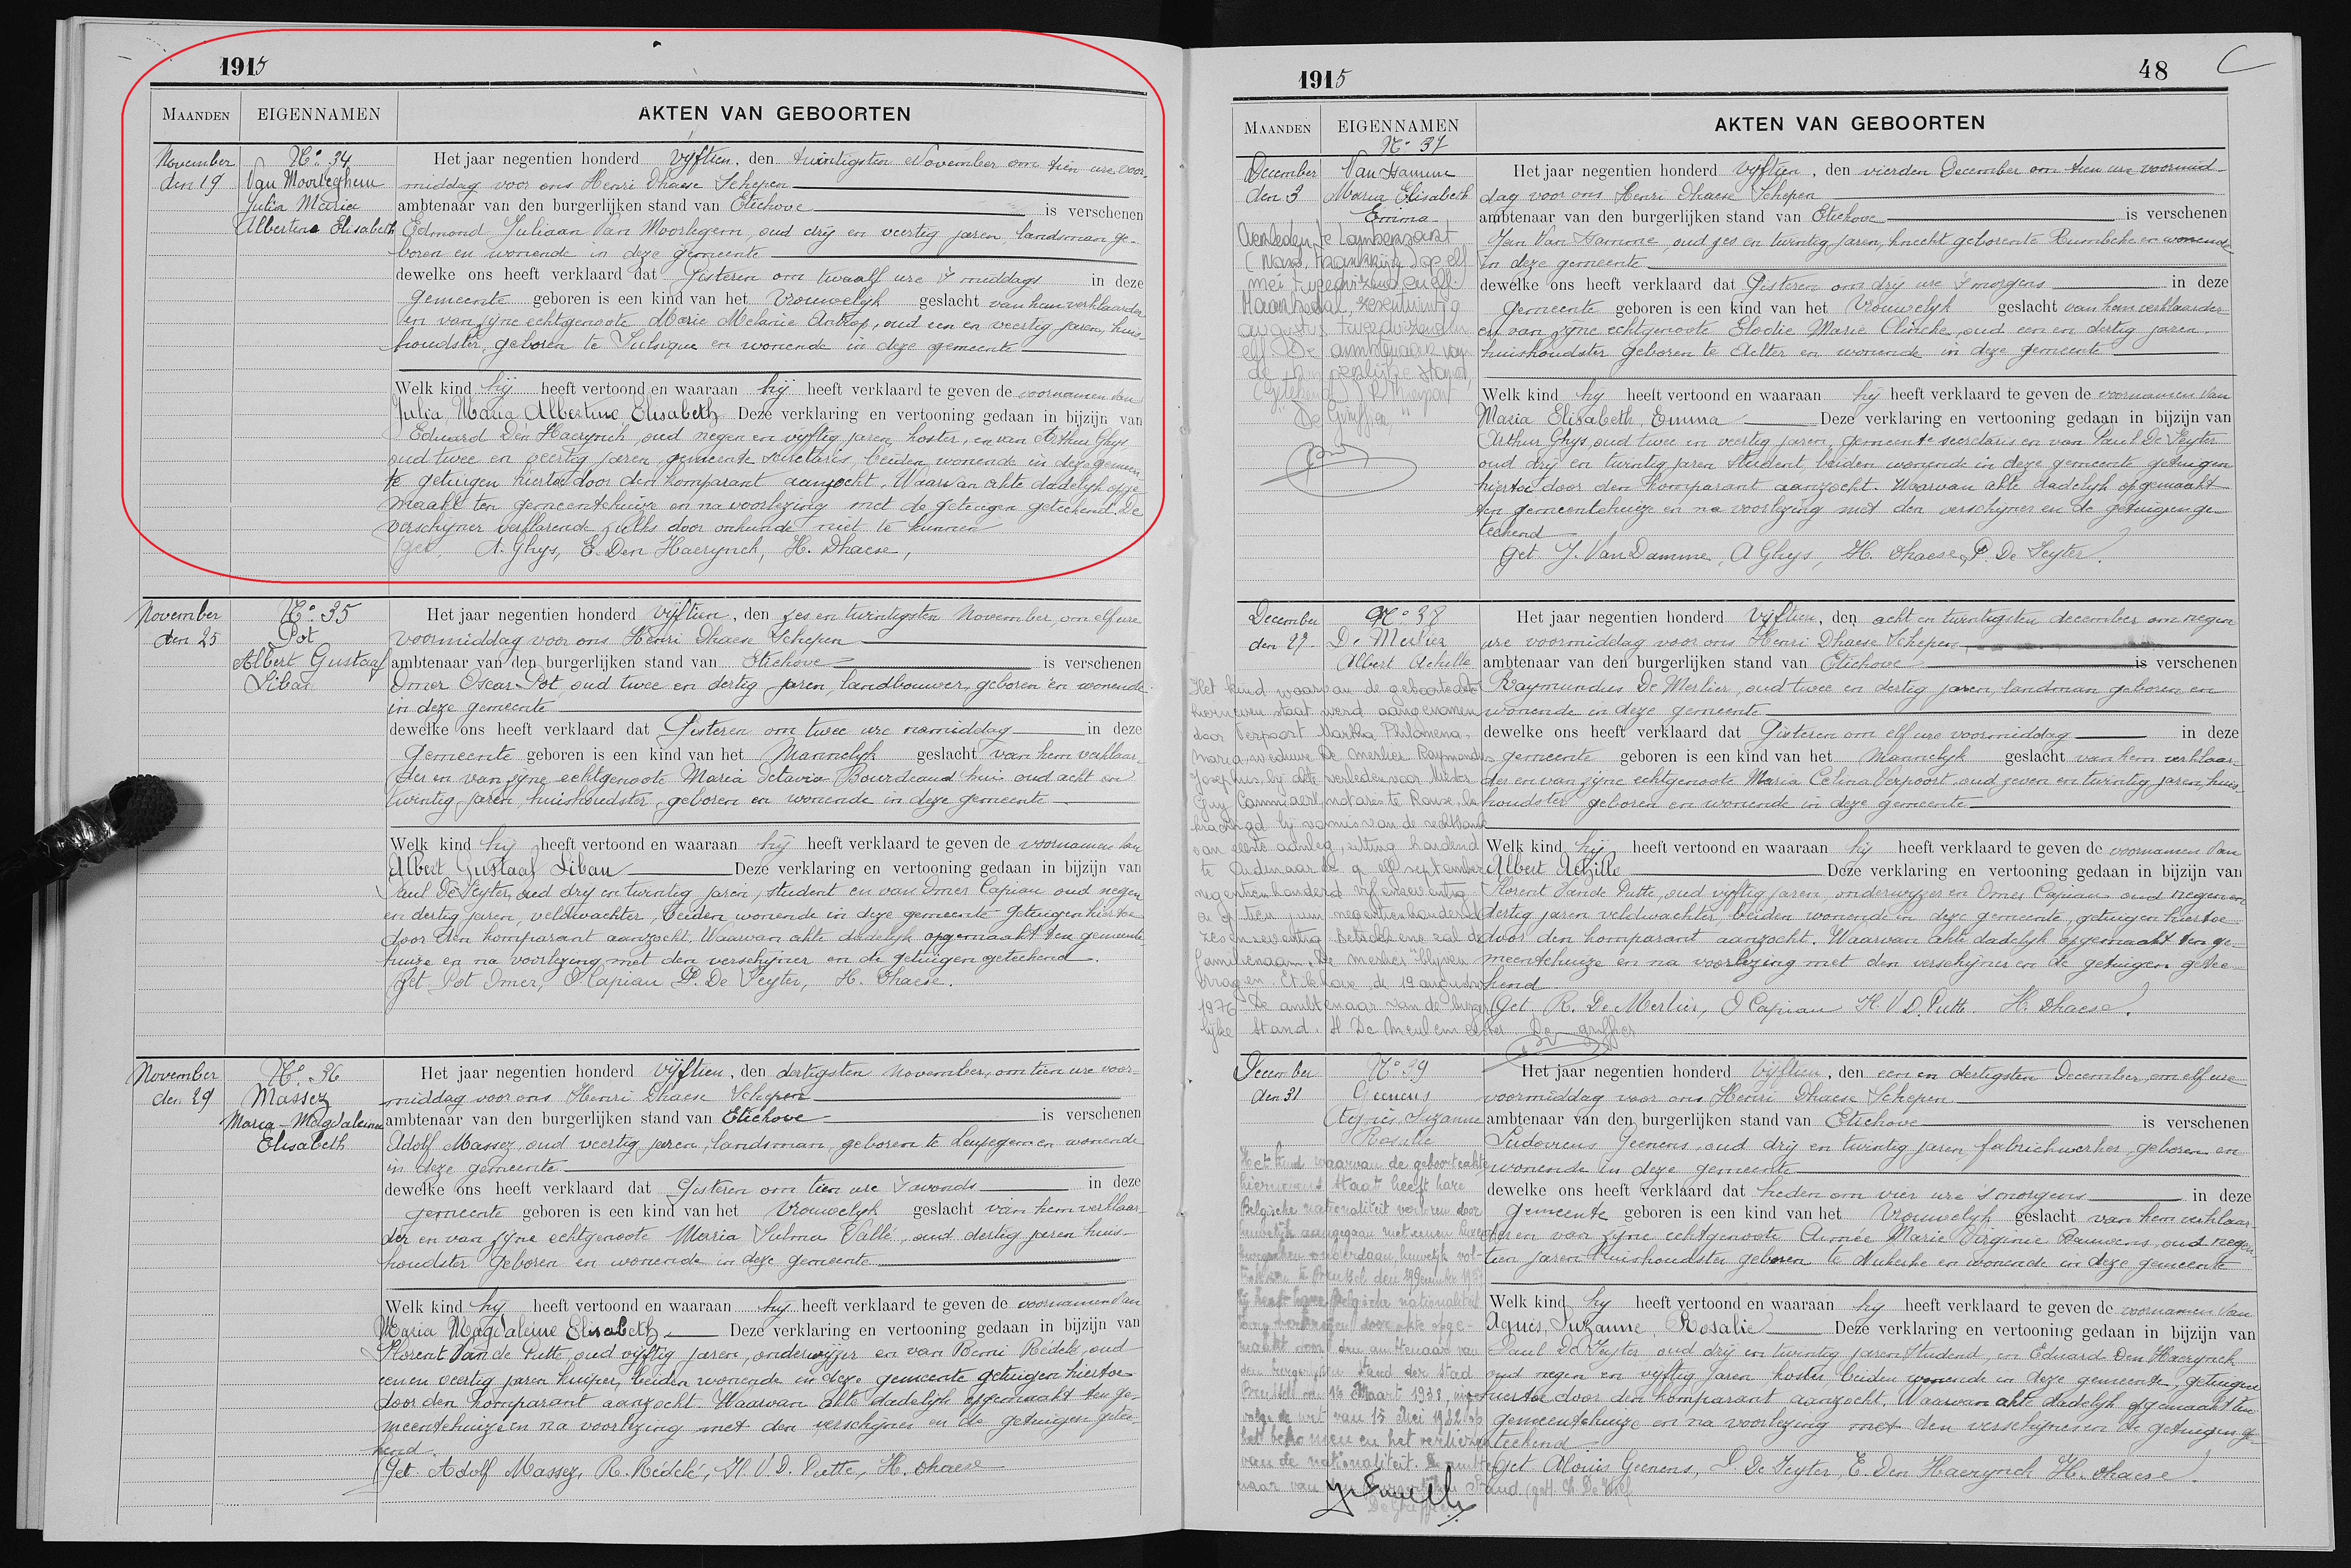 1915
MAANDEN EIGENNAMEN AKTEN VAN GEBOORTEN
November den 19
N° 34
Van Moorleghem
Julia Maria
Albertine Elisabeth
Het jaar negentien honderd vijftien, den twintigsten November om tien ure voor-
middag voor ons Henri Dhaese Schepen
ambtenaar van den burgerlijken stand van Etichove is verschenen
Edmond Juliaan Van Moorlegem, oud drij en veertig jaren, landsman ge-
boren en wonende in deze gemeente
dewelke ons heeft verklaard dat Gisteren om twaalf ure 's middags in deze
gemeente geboren is een kind van het Vrouwelijk geslacht van hem verklaarder
en van zijne echtgenoote Marie Melanie Antrop, oud een en veertig jaren, huis-
houdster, geboren te Sulsique en wonende in deze gemeente
Welk kind hij heeft vertoond en waaraan hij heeft verklaard te geven de voornamen van
Julia Maria Albertine Elisabeth Deze verklaring en vertooning gedaan in bijzijn van
Eduard Den Haerynck, oud negen en vijftig jaren, koster, en van Arthur Ghys
oud twee en veertig jaren gemeente secretaris, beiden wonende in deze gemeen
te getuigen hiertoe door den komparant aanzocht. Waarvan akte dadelijk opge
maakt ten gemeentehuize en na voorlezing met de getuigen geteekend. De
verschijner verklarend zulks door onkunde niet te kunnen
get. A. Ghys, E. Den Haerynck, H. Dhaese,
November den 25
N° 35
Pot
Albert Gustaaf
Liban
Het jaar negentien honderd vijftien, den zes en twintigsten November, om elf ure
voormiddag voor ons Henri Dhaese Schepen
ambtenaar van den burgerlijken stand van Etichove is verschenen
Omer Oscar Pot oud twee en dertig jaren, landbouwer, geboren en wonende
in deze gemeente
dewelke ons heeft verklaard dat Gisteren om twee ure namiddag in deze
gemeente geboren is een kind van het Mannelijk geslacht van hem verklaar-
der en van zijne echtgenoote Maria Octavia Bourdeaud'hui oud acht en
twintig jaren, huishoudster, geboren en wonende in deze gemeente
Welk kind hij heeft vertoond en waaraan hij heeft verklaard te geven de voornamen van
Albert Gustaaf Liban Deze verklaring en vertooning gedaan in bijzijn van
Paul De Seyter, oud drij en twintig jaren, student en van Omer Capiau oud negen
en dertig jaren, veldwachter, beiden wonende in deze gemeente getuigen hiertoe
door den komparant aanzocht. Waarvan akte dadelijk opgemaakt ten gemeente
huize en na voorlezing met den verschijner en de getuigen geteekend.
get Pot Omer, O Capiau P. De Seyter, H. Dhaese.
November den 29
N° 36
Massez
Maria-Magdaleine
Elisabeth
Het jaar negentien honderd vijftien, den dertigsten November, om tien ure voor-
middag voor ons Henri Dhaese Schepen
ambtenaar van den burgerlijken stand van Etichove is verschenen
Adolf Massez, oud veertig jaren, landsman, geboren te Leupegem en wonende
in deze gemeente
dewelke ons heeft verklaard dat Gisteren om tien ure 's avonds in deze
gemeente geboren is een kind van het Vrouwelijk geslacht van hem verklaar-
der en van zijne echtgenoote Maria Sulma Vallé, oud dertig jaren huis-
houdster geboren en wonende in deze gemeente
Welk kind hij heeft vertoond en waaraan hij heeft verklaard te geven de voornamen van
Maria Magdaleine Elisabeth Deze verklaring en vertooning gedaan in bijzijn van
Florent Van de Putte, oud vijftig jaren, onderwijzer en van Remi Rédelé, oud
een en veertig jaren kuiper, beiden wonende in deze gemeente getuigen hiertoe
door den komparant aanzocht. Waarvan akte dadelijk opgemaakt ten ge-
meentehuize en na voorlezing met den verschijner en de getuigen getee-
kend.
Get Adolf Massez, R. Rédelé, Fl. V. D. Putte, H. Dhaese
1915 48
MAANDEN EIGENNAMEN AKTEN VAN GEBOORTEN
December den 3
N° 37
Van Hamme
Maria Elisabeth
Emma
Overleden te Lambersart
(Noord, Frankrijk) op elf
mei tweeduizend en elf
Maarkedal, zesentwintig
augustus tweeduizend
elf De ambtenaar van
de burgerlijke stand,
De Griffier,
Het jaar negentien honderd vijftien, den vierden December om tien ure voormid-
dag voor ons Henri Dhaese Schepen
ambtenaar van den burgerlijken stand van Etichove is verschenen
Jan Van Hamme, oud zes en twintig jaren, knecht geboren te Rumbeke en wonende
in deze gemeente
dewelke ons heeft verklaard dat Gisteren om drij ure 's morgens in deze
gemeente geboren is een kind van het Vrouwelijk geslacht van hem verklaarder
en van zijne echtgenoote Elodie Marie Clincke, oud een en dertig jaren,
huishoudster geboren te Aelter en wonende in deze gemeente
Welk kind hij heeft vertoond en waaraan hij heeft verklaard te geven de voornamen van
Maria Elisabeth, Emma Deze verklaring en vertooning gedaan in bijzijn van
Arthur Ghys, oud twee en veertig jaren, gemeente secretaris en van Paul De Seyter
oud drij en twintig jaren student, beiden wonende in deze gemeente getuigen
hiertoe door den komparant aanzocht. Waarvan akte dadelijk opgemaakt
ten gemeentehuize en na voorlezing met den verschijner en de getuigen ge-
teekend
Get J. Van Damme, A Ghys, H. Dhaese, P. De Seyter.
December den 27
N° 38
De Merlier
Albert Achille
Het kind waarvan de geboorteakte
hierneven staat werd aangenomen
door Verpoort Martha Philomena
Maria, weduwe De Merlier Raymond
Josephus, bij akte verleden voor Meester
Guy notaris te Ronse, be
krachtigd bij vonnis van de rechtbank
van eerste aanleg, zitting houdend
te Oudenaarde op elf september
negentienhonderd vijfenzeventig
tien juni negentienhonderd
zesenzeventig. Betrokkene zal de
familienaam De Merlier blijven
dragen. Etikhove, de 19 augustus
1976 De ambtenaar van de burger
lijke stand. H De Meulemeester De griffier
Het jaar negentien honderd vijftien, den acht en twintigsten december om negen
ure voormiddag voor ons Henri Dhaese Schepen
ambtenaar van den burgerlijken stand van Etichove is verschenen
Raymundus De Merlier, oud twee en dertig jaren, landman geboren en
wonende in deze gemeente
dewelke ons heeft verklaard dat Gisteren om elf ure voormiddag in deze
gemeente geboren is een kind van het Mannelijk geslacht van hem verklaar-
der en van zijne echtgenoote Maria Celina Verpoort, oud zeven en twintig jaren, huis-
houdster geboren en wonende in deze gemeente
Welk kind hij heeft vertoond en waaraan hij heeft verklaard te geven de voornamen van
Albert Achille Deze verklaring en vertooning gedaan in bijzijn van
Florent Vande Putte, oud vijftig jaren, onderwijzer en Omer Capiau oud negen en
dertig jaren veldwachter, beiden wonende in deze gemeente, getuigen hiertoe
door den komparant aanzocht. Waarvan akte dadelijk opgemaakt ten ge-
meentehuize en na voorlezing met den verschijner en de getuigen getee-
kend
Get R. De Merlier, O Capiau Fl. V D. Putte H. Dhaese.
December den 31
N° 39
Geenens
Agnès Suzanne
Rosalie
Het kind waarvan de geboorteakte
hiernevens staat heeft hare
Belgische nationaliteit verloren door
huwelijk aangegaan met eenen
onderdaan, huwelijk vol-
trokken te Brussel den
zij heeft hare Belgische nationaliteit
door akte opge-
maakt voor den ambtenaar van
den burgerlijken stand der stad
Brussel, den Maart 1938, inge
volge de wet van 15 Mei 1922 op
het bekomen en het verliezen
van de nationaliteit. De ambte
naar van den burgerlijken Stand
De Griffier
Het jaar negentien honderd vijftien, den een en dertigsten December, om elf ure
voormiddag voor ons Henri Dhaese Schepen
ambtenaar van den burgerlijken stand van Etichove is verschenen
Ludovicus Geenens, oud drij en twintig jaren fabriekwerker, geboren en
wonende in deze gemeente
dewelke ons heeft verklaard dat heden om vier ure 's morgens in deze
gemeente geboren is een kind van het Vrouwelijk geslacht van hem verklaar-
der en van zijne echtgenoote Aimée Marie Virginie Bauwens, oud negen
tien jaren huishoudster geboren te Nukerke en wonende in deze gemeente
Welk kind hij heeft vertoond en waaraan hij heeft verklaard te geven de voornamen van
Agnès, Suzanne, Rosalie Deze verklaring en vertooning gedaan in bijzijn van
Paul De Seyter, oud drij en twintig jaren Student, en Eduard Den Haerynck
oud negen en vijftig jaren koster, beiden wonende in deze gemeente, getuigen
hiertoe door den komparant aanzocht. Waarvan akte dadelijk opgemaakt ten
gemeentehuize en na voorlezing met den verschijner en de getuigen ge-
teekend
Get Aloïis Geenens, P De Seyter, E. Den Haerynck H. Dhaese.